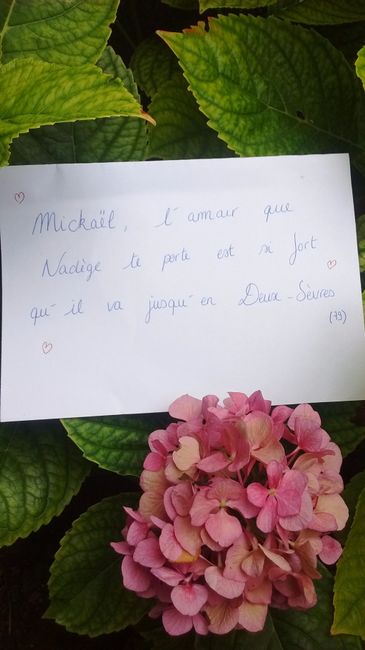 Mickaël, l'amour que
Nadège te porte est si fort
qu'il va jusqu'en Deux-Sèvres
(79)